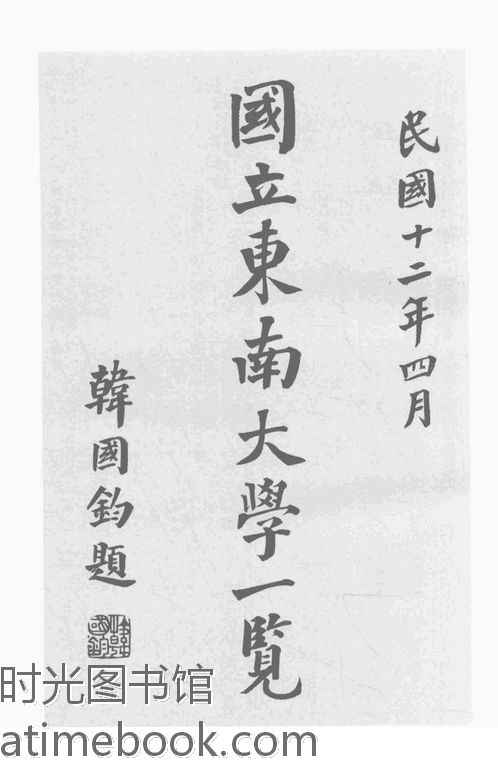 民國十二年四月
國立東南大學一覽
韓國鈞題
时光图书馆
atimebook.com